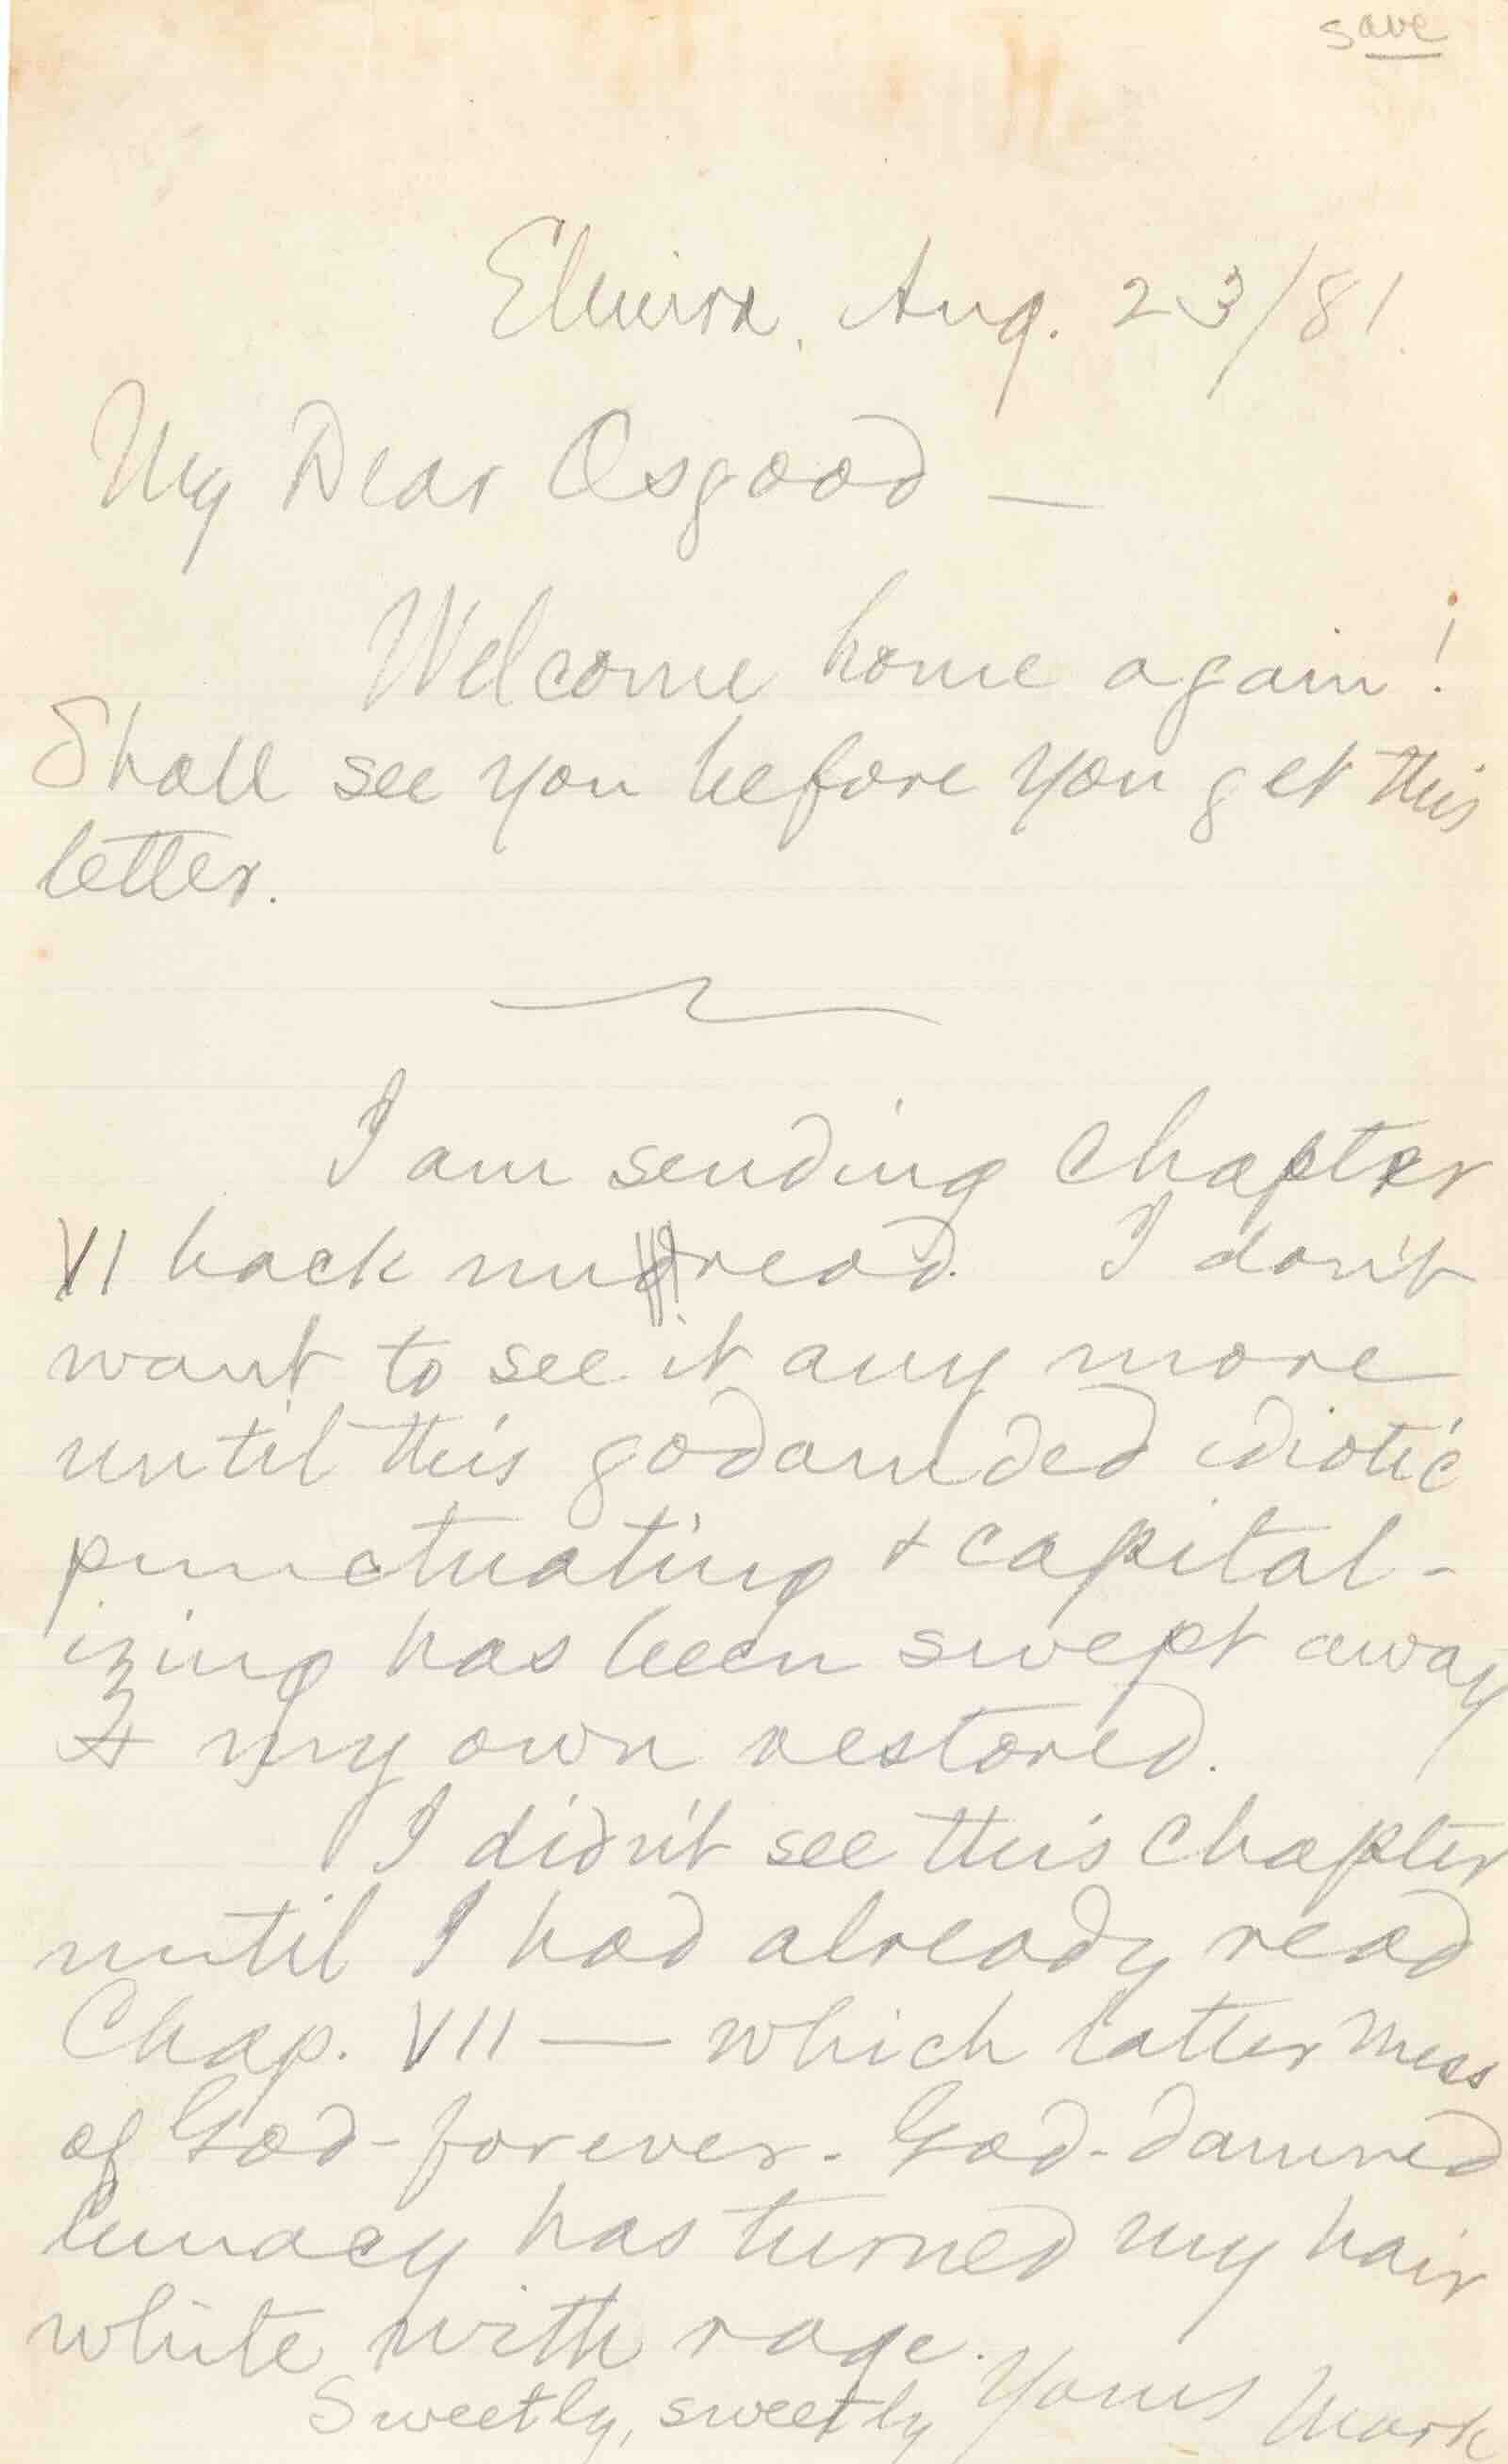 save
Elmira, Aug. 23/81.
My Dear Osgood —
Welcome home again!
Shall see you before you get this
letter.
I am sending Chapter
VI back unread. I don't
want to see it any more
until this godamded idiotic
punctuating & capital-
izing has been swept away
& my own restored.
I didn't see this Chapter
until I had already read
Chap. VII — which latter mess
of God-forever-God-damned
lunacy has turned my hair
white with rage.
Sweetly, sweetly Yours Mark